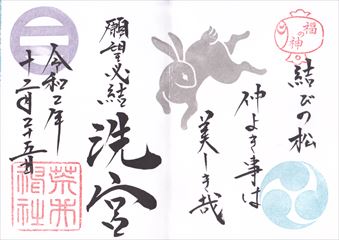 福の神
結びの松
仲よき事は
美しき哉
願望必結
洗宮
令和二年
十二月二十五日
荒井神社